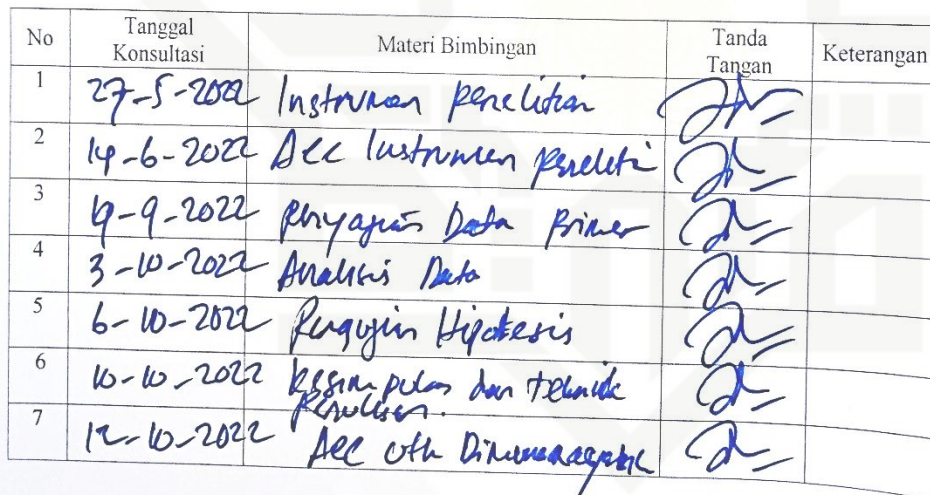 No Tanggal Konsultasi Materi Bimbingan Tanda Tangan Keterangan
1 27-5-2022 Instrumen penelitian
2 14-6-2022 Acc Instrumen peneleti
3 19-9-2022 penyajian Data Primer
4 3-10-2022 Analisis Data
5 6-10-2022 Pengujian Hipotesis
6 10-10-2022 kesimpulan dan teknik
penulisan.
7 12-10-2022 Acc utk